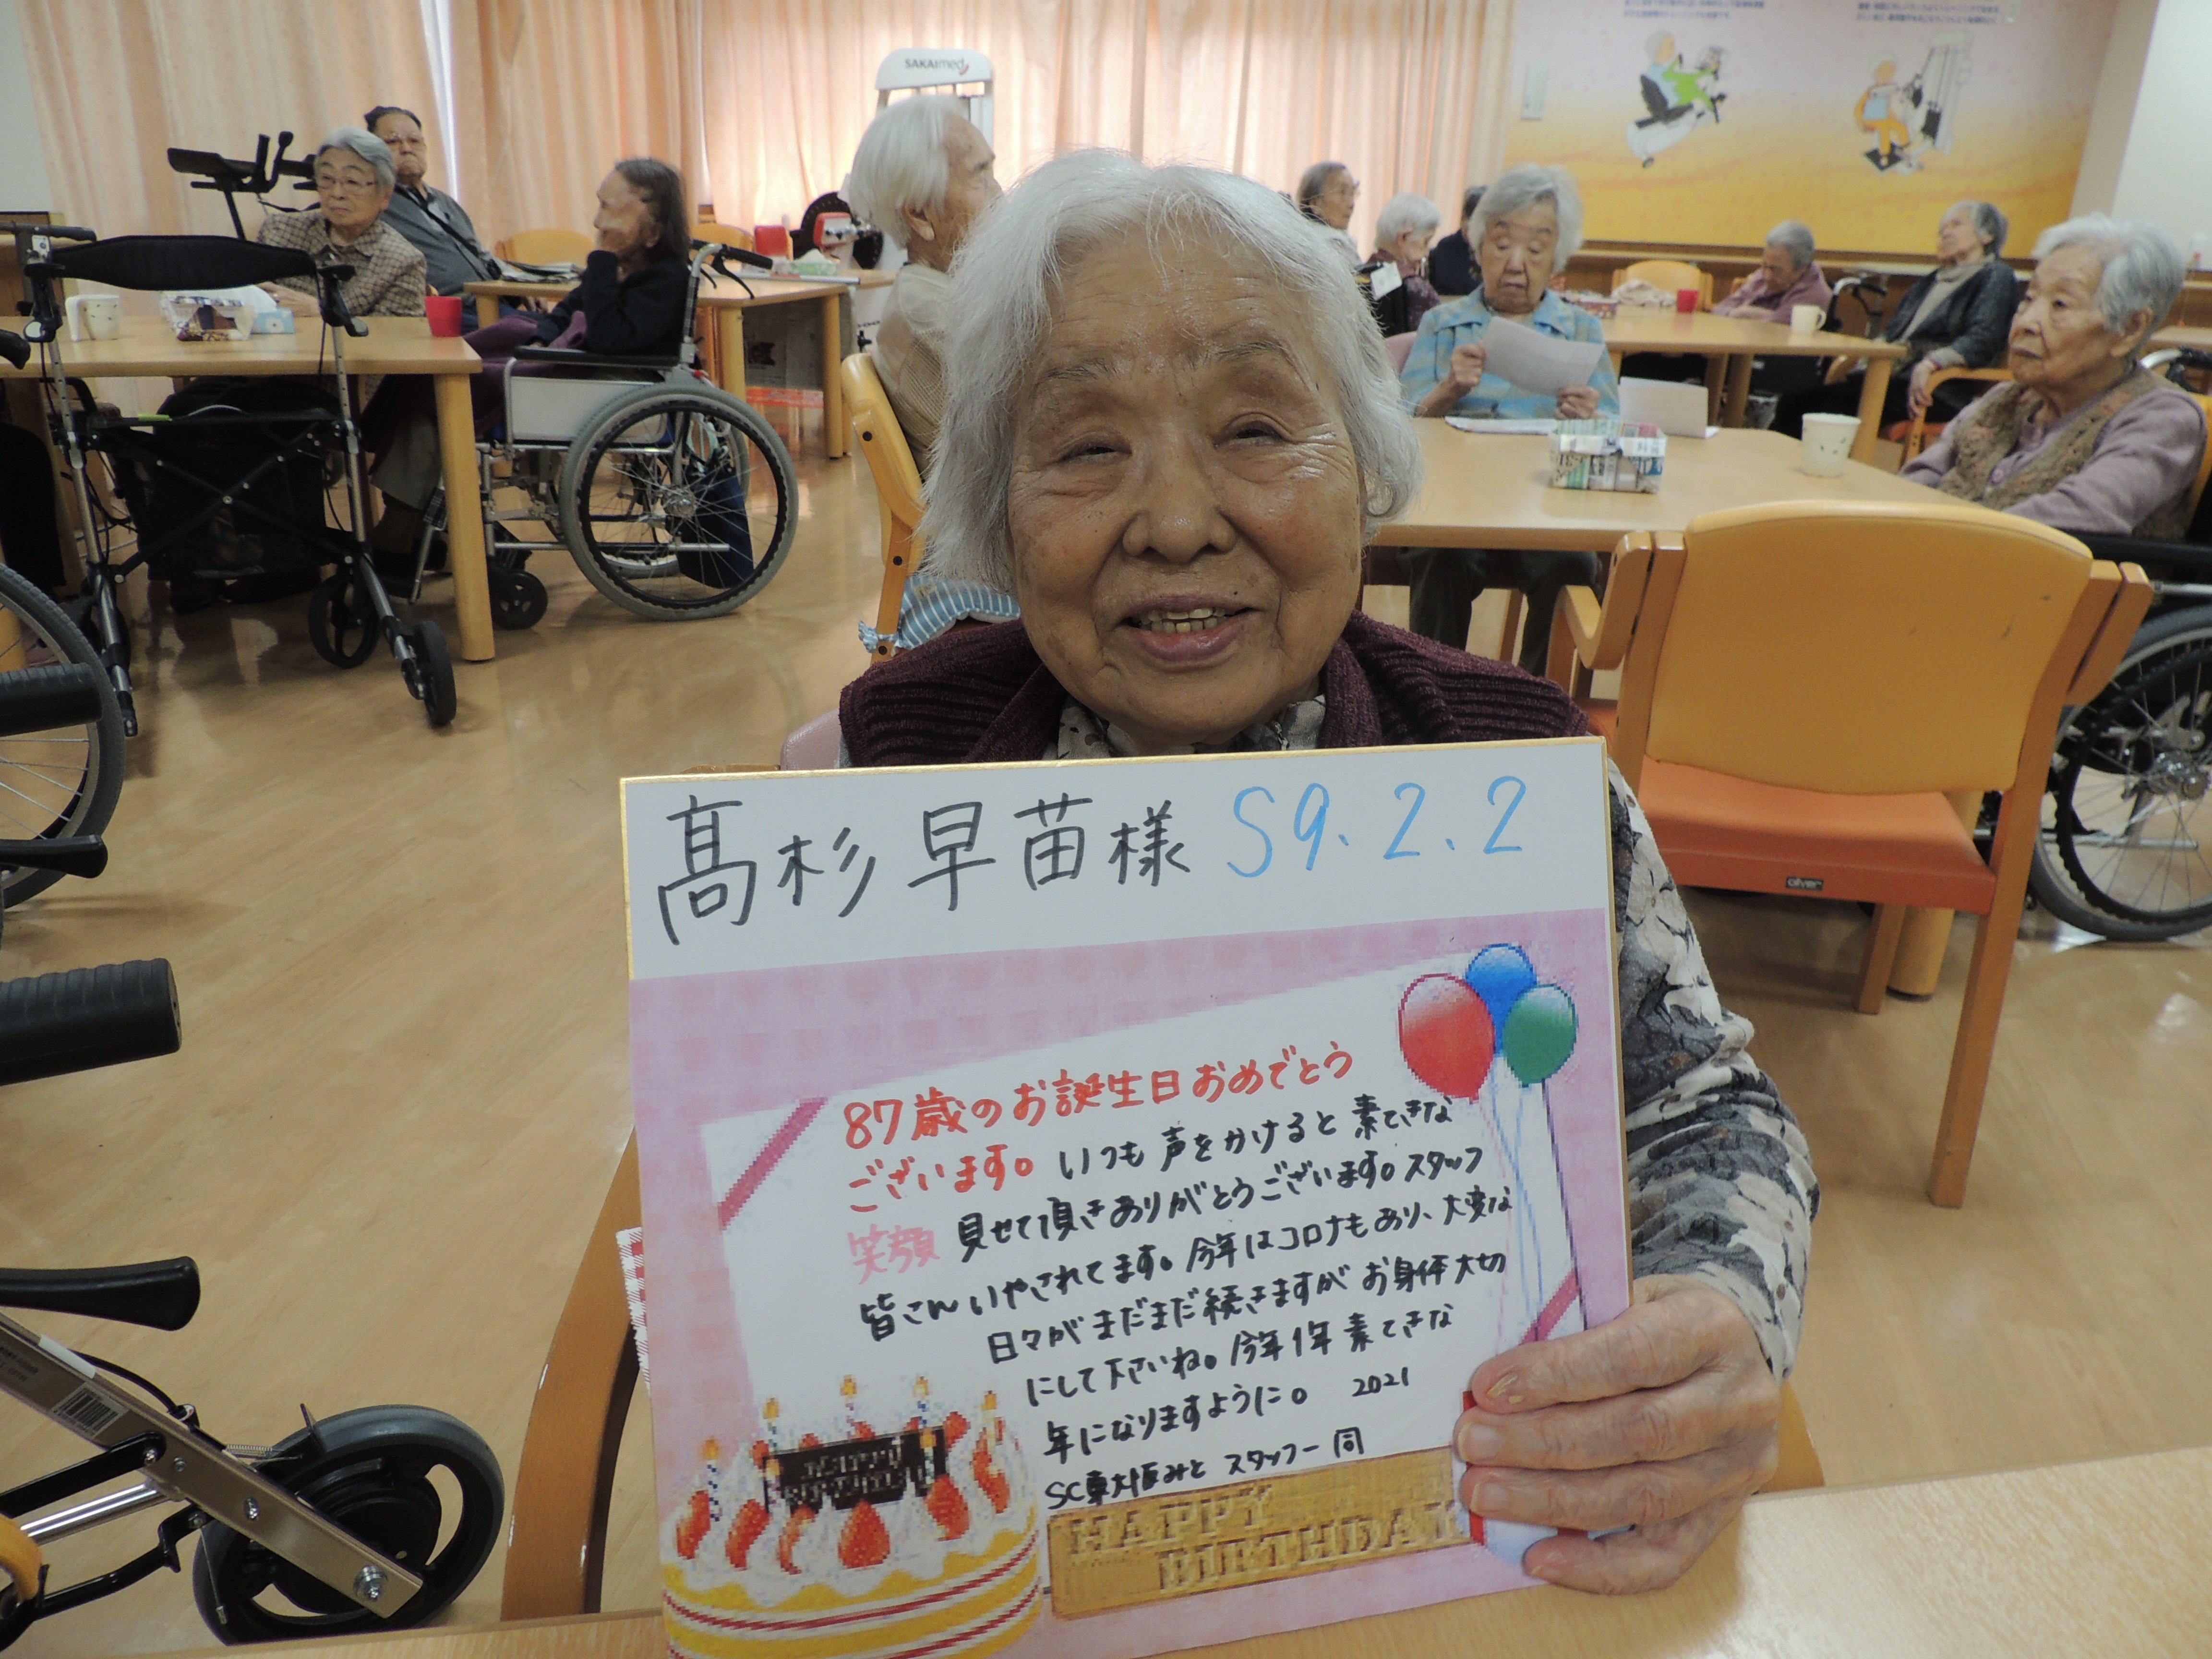 SAKAImed
髙杉 早苗様 S9.2.2
87歳のお誕生日おめでとう
ございます。いつも声をかけると素てきな
笑顔 見せて頂きありがとうございます。スタッフ
皆さんいやされてます。今年はコロナもあり、大変な
日々がまだまだ続きますがお身体大切
にして下さいね。今年1年素てきな
年になりますように。 2021
SC東大恒みと スタッフ一同
HAPPY
BIRTHDAY
olver